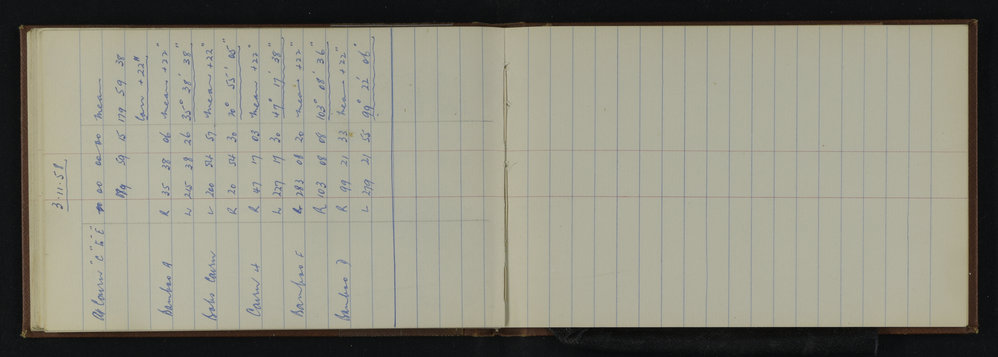 3.11.58
Cairn "C" to "E" 00 00 00 mean
179 59 15 179 59 38
corr + 22"
Bamboo A R 35 38 06 mean + 22"
L 215 38 26 35° 38' 38"
Bobs Cairn L 200 54 57 mean + 22"
R 20 54 30 20° 55' 05"
Cairn H R 47 17 03 mean + 22"
L 227 17 30 47° 17' 38"
Bamboo E L 283 08 20 mean + 22"
R 103 08 08 103° 08' 36"
Bamboo D R 99 21 33 mean + 22"
L 279 21 55 99° 22' 06"